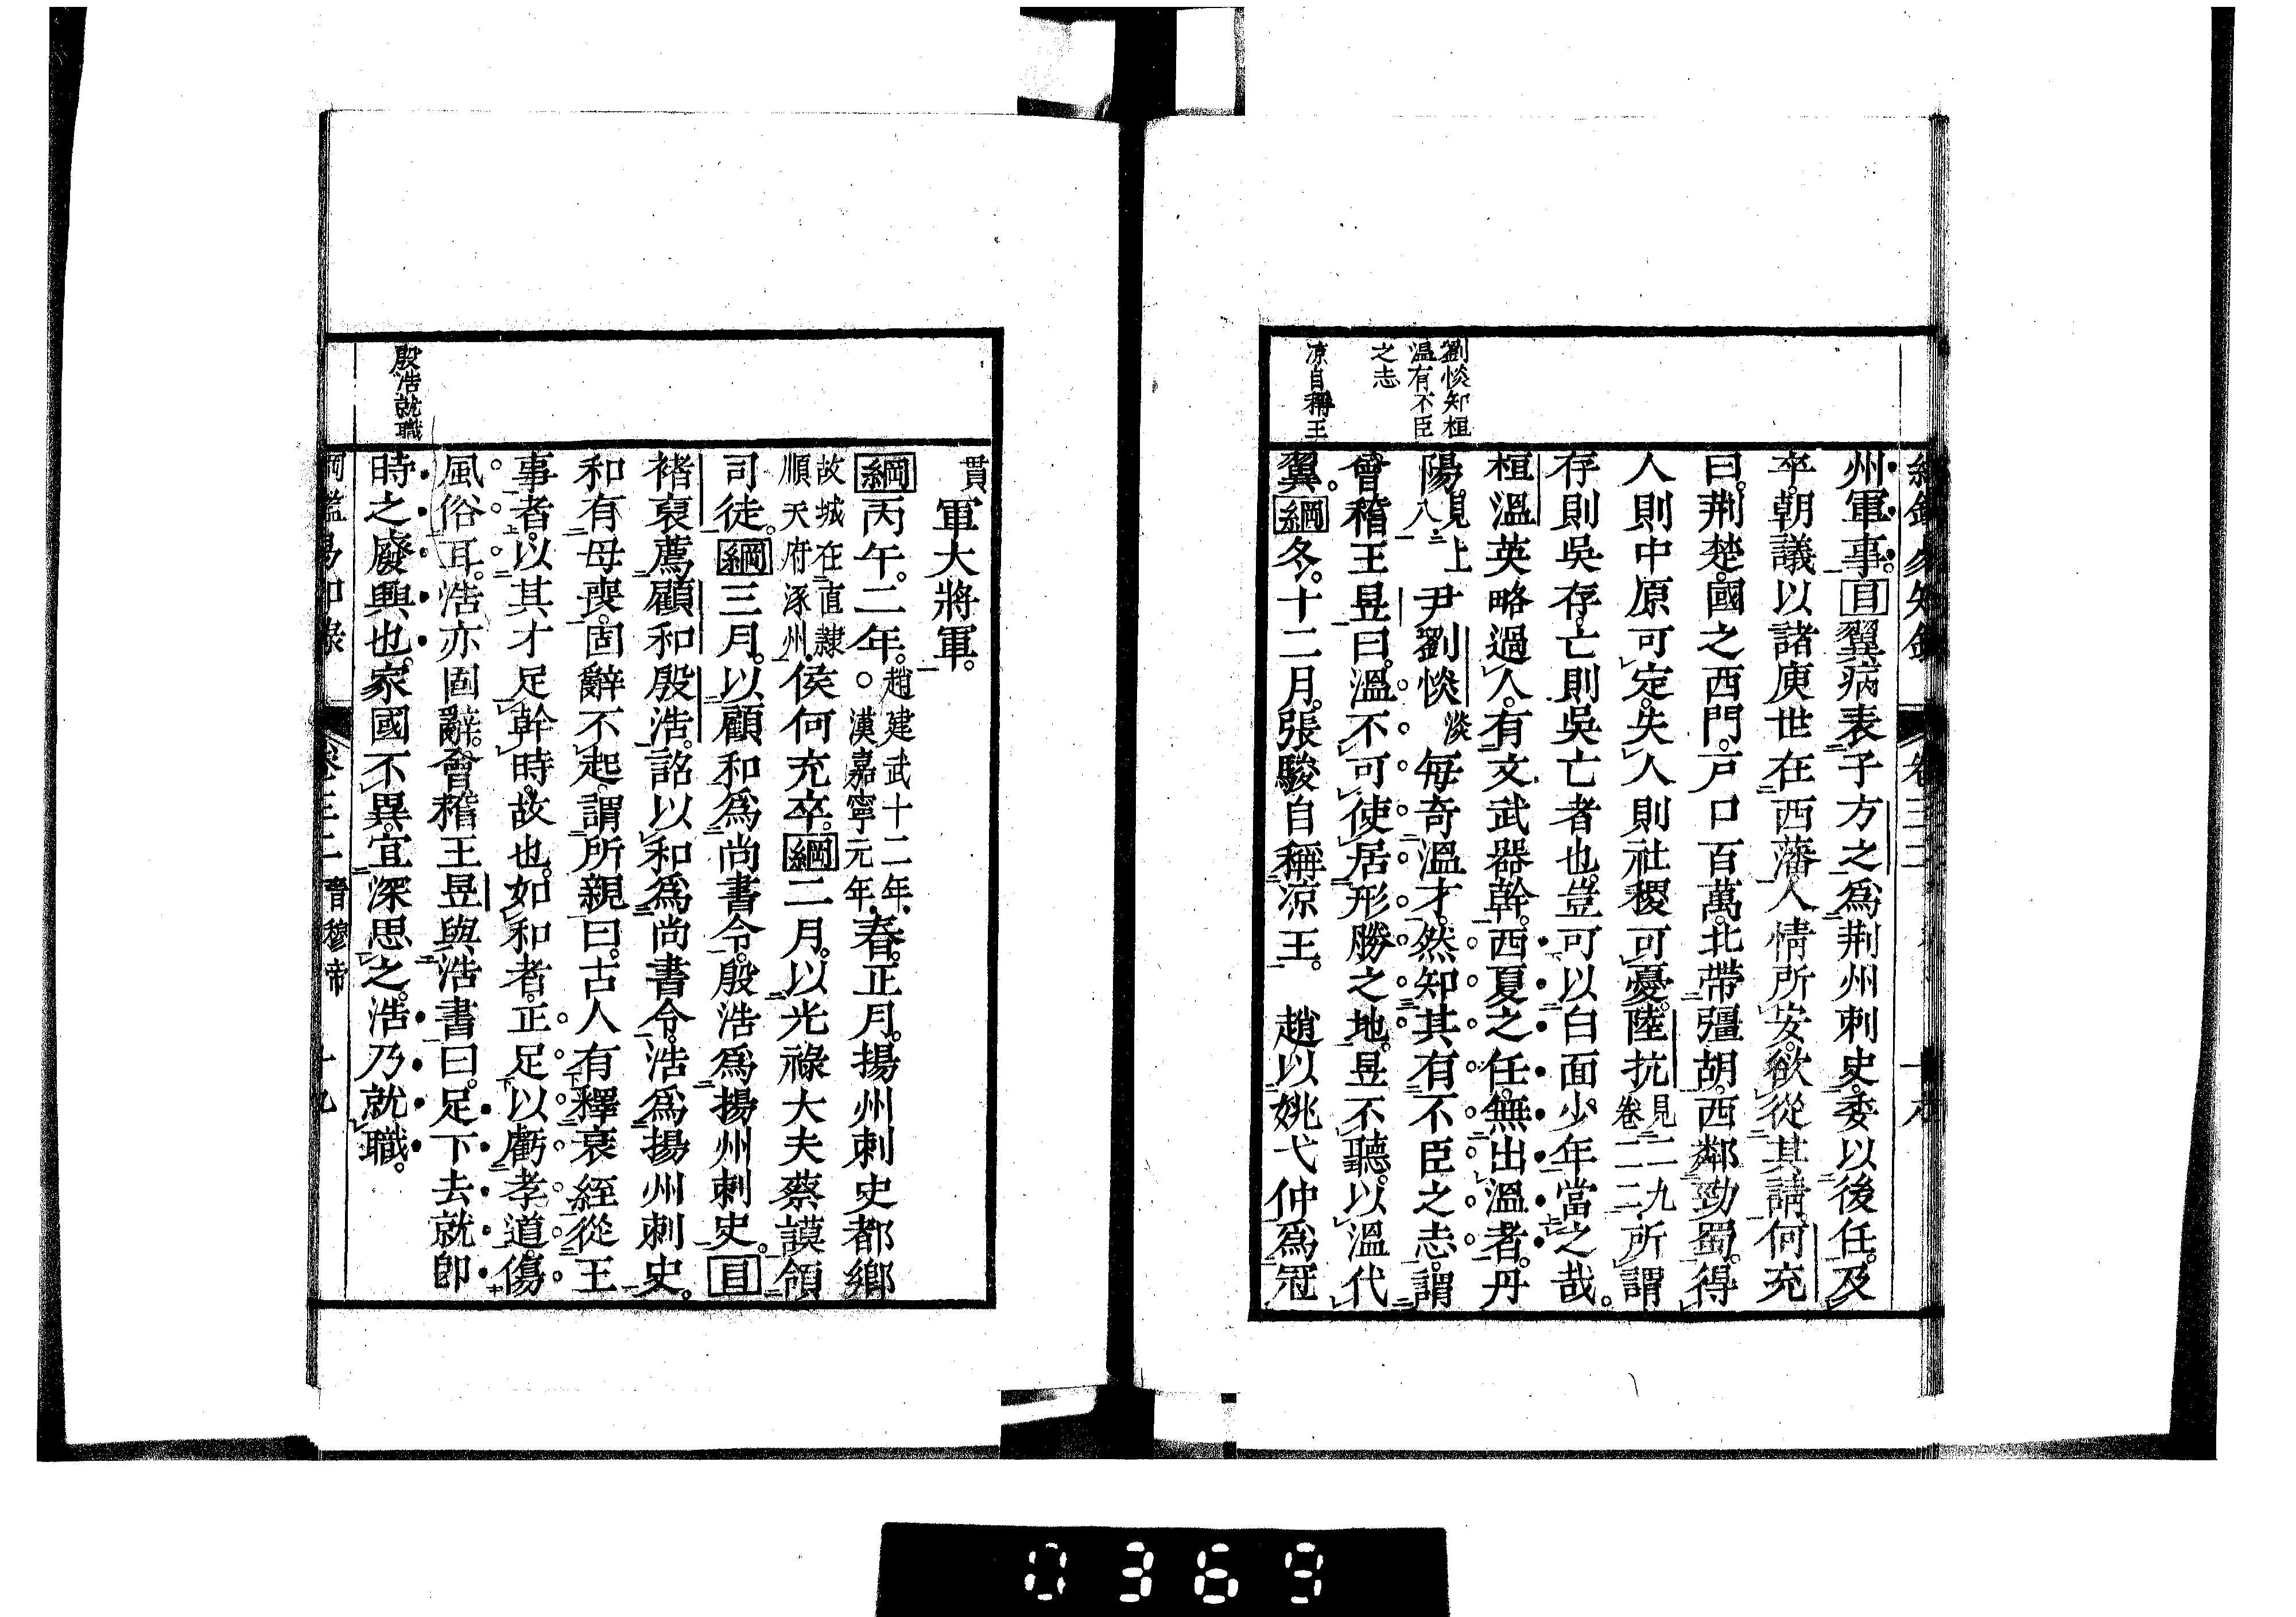 劉惔知桓
温有不臣
之志
凉自稱王
州軍事。目翼病表子方之爲荆州刺史。委以後任。及
卒。朝議以諸庾世在西藩。人情所安。欲從其請。何充
曰。荆楚。國之西門。戸口百萬。北帶彊胡。西鄰勁蜀。得
人則中原可定。失人則社稷可憂。陸抗見二九卷一二所謂
存則吳存。亡則吳亡者也。豈可以白面少年當之哉。
桓溫英略過人。有文武器幹。西夏之任。無出溫者。丹
陽見上八尹劉惔淡每奇溫才。然知其有不臣之志。謂
會稽王昱曰。溫不可使居形勝之地。昱不聽。以溫代
翼。綱冬。十二月。張駿自稱凉王。 趙以姚弋仲爲冠
殷浩就職
貫軍大將軍。
綱丙午。二年。趙建武十二年。漢嘉寧元年。春。正月。揚州刺史都鄉
故城在直隸順天府涿州侯何充卒。綱二月。以光祿大夫蔡謨領
司徒。綱三月。以顧和爲尚書令。殷浩爲揚州刺史。目
褚裒薦顧和殷浩。詔以和爲尚書令。浩爲揚州刺史。
和有母喪。固辭不起。謂所親曰。古人有釋衰絰從王
事者。以其才足幹時故也。如和者。正足以虧孝道。傷
風俗耳。浩亦固辭。會稽王昱與浩書曰。足下去就。卽
時之廢興也。家國不異。宜深思之。浩乃就職。
晉穆帝 十九
0369